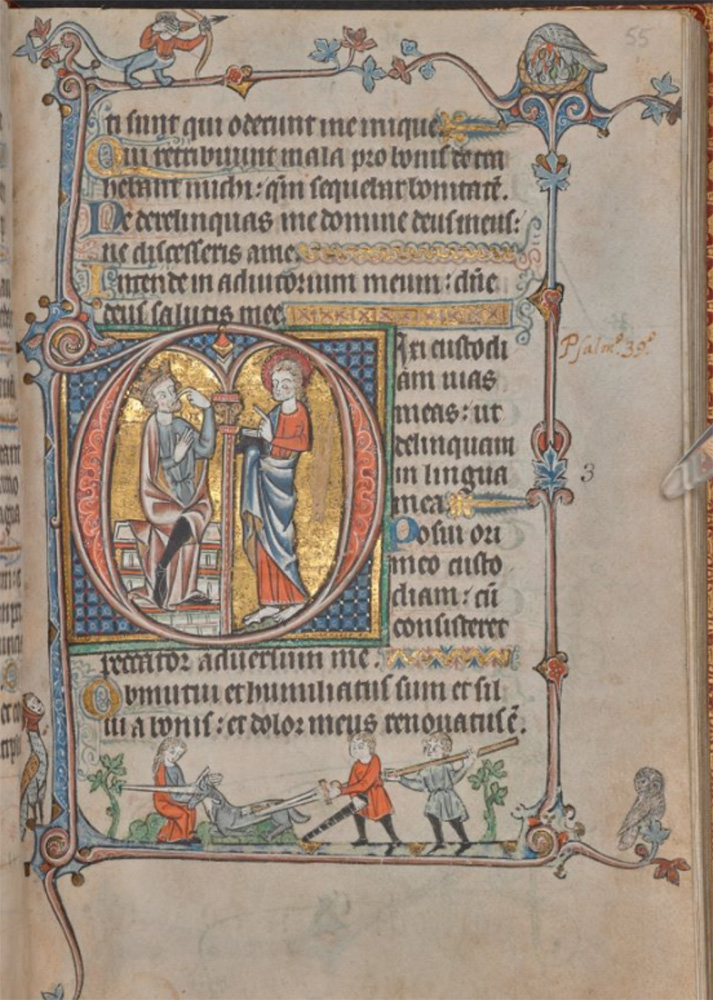 55
ti sunt qui oderunt me inique
Qui retribuunt mala pro bonis detra
hebant michi: qm sequebar bonitatē.
Ne derelinquas me domine deus meus:
ne discesseris a me.
Intende in adiutorium meum: dñe
deus salutis mee.
Dixi custodi
am uias
meas: ut
delinquam
in lingua
mea
Posui ori
meo custo
diam: cū
consisteret
peccator aduersum me.
Obmutui et humiliatus sum et sil
ui a bonis: et dolor meus renouatus ē.
Psalmꝰ. 39ꝰ.
3